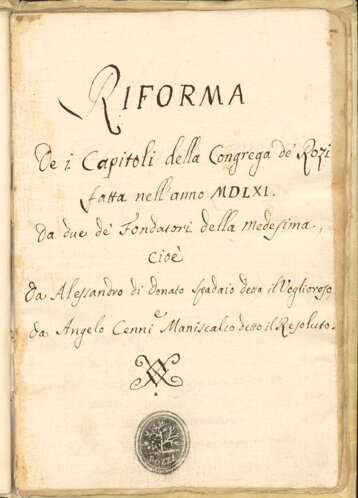 RIFORMA
De i Capitoli della Congrega de' Rozi
fatta nell'anno MDLXI.
Da due de' Fondatori della Medesima,
cioè
da Alessandro di Donato Spadaio detto il Voglioroso,
e
da Angelo Cenni Maniscalco detto il Resoluto.
ROZZI